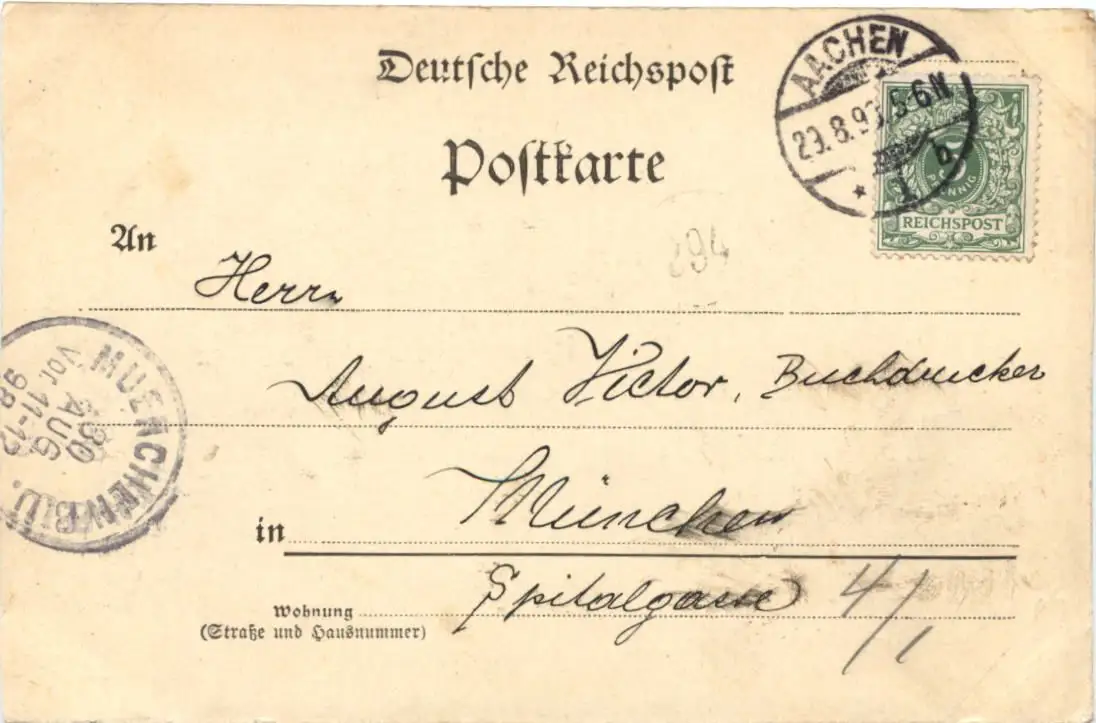 Deutsche Reichspost
Postkarte
AACHEN
29.8.98 5-6N
* 1 b.
5
PFENNIG
REICHSPOST
An
Herrn
894
August Victor, Buchdrucker
MUENCHEN B.W.
30
AUG
Vor. 11-12
98
in
München
Spitalgasse 4/1
Wohnung
(Straße und Hausnummer)